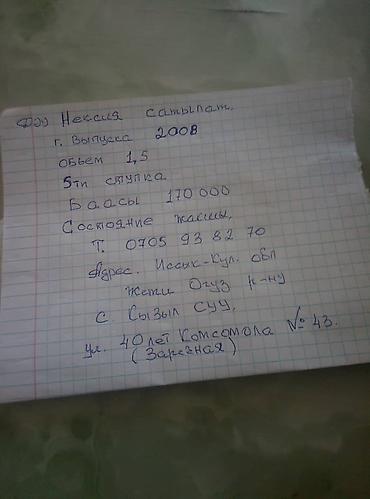 Дэу Нексия сатылат.
г. Выпуска 2008
объем 1,5
5ти ступка
Баасы 170 000
Состояние жакшы,
Т. 0705 93 82 70
Адрес. Иссык-Кул. обл
Жети Огуз р-ну
с. Кызыл суу.
ул. 40 лет Комсомола № 43.
(Заречная)